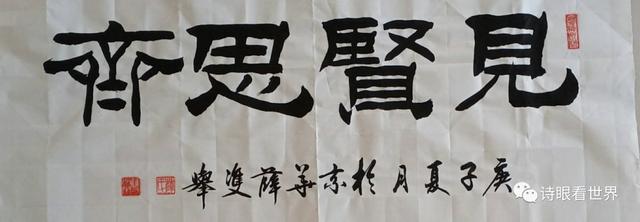 見賢思齊
庚子夏月於京華薛雙舉
诗眼看世界